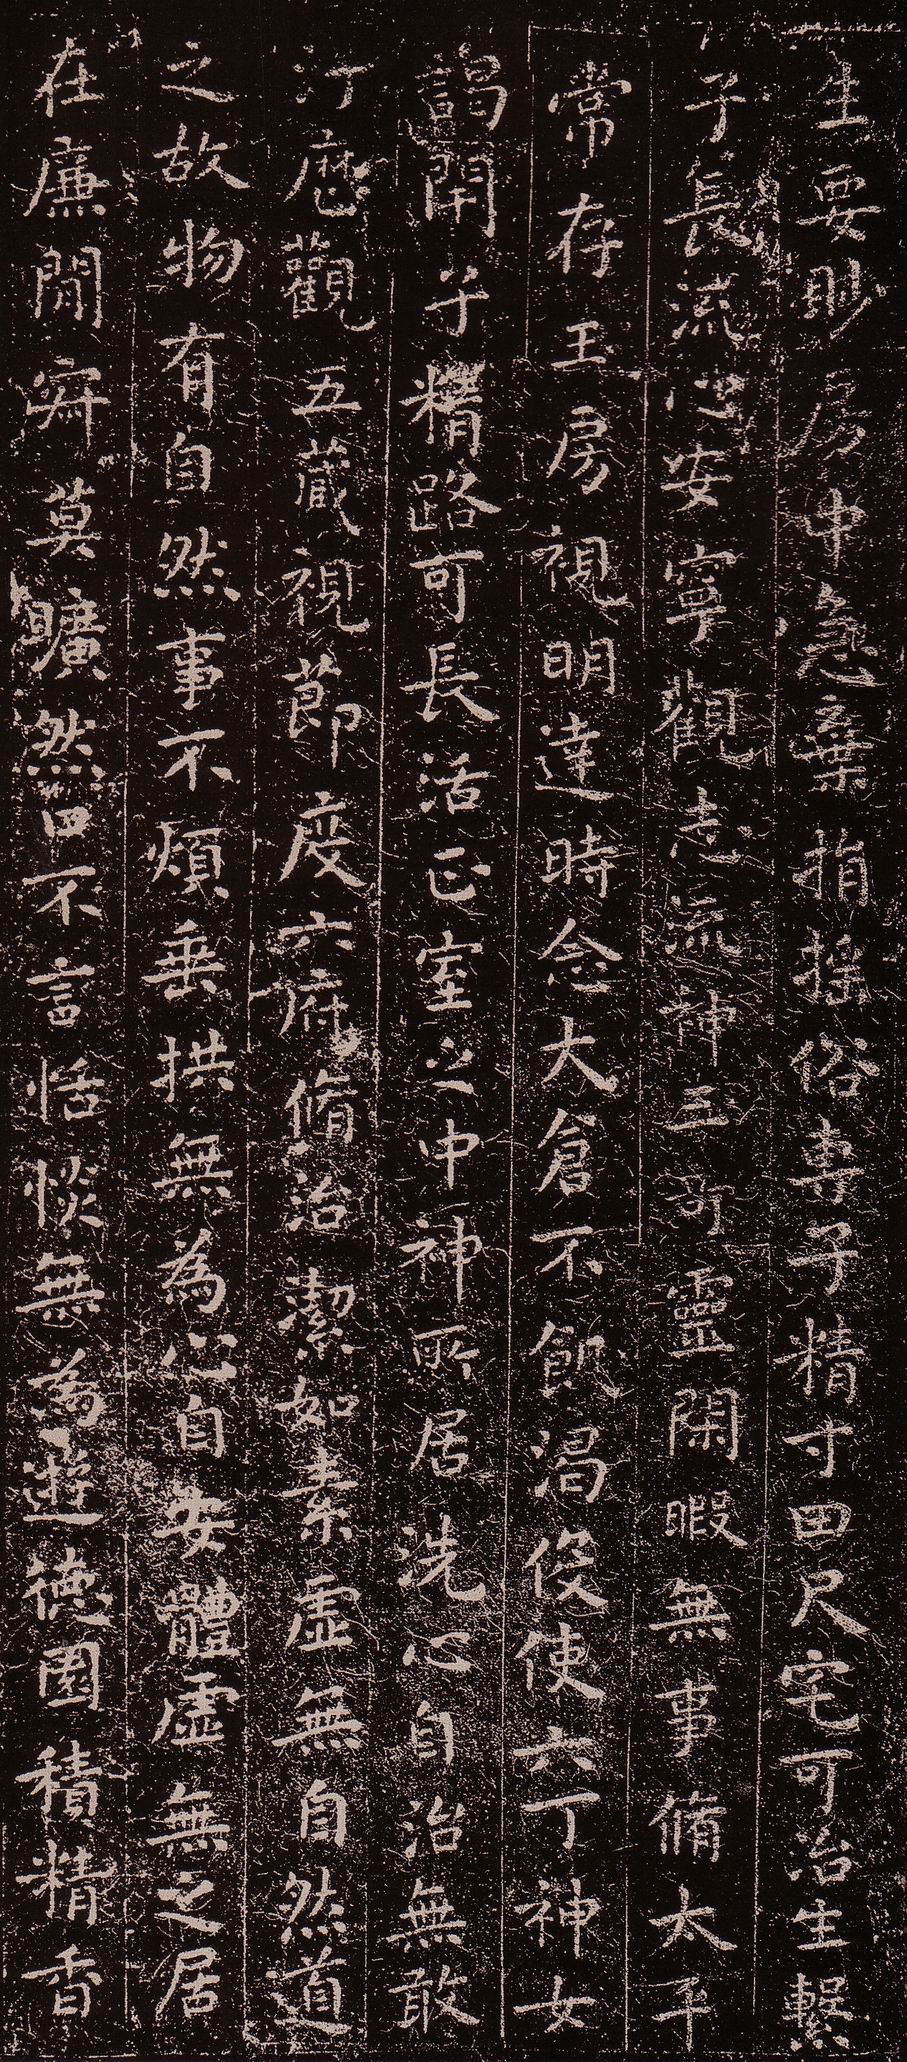 生要眇房中急棄捐搖俗專子精寸田尺宅可治生繫
子長流心安寧觀志流神三奇靈閑暇無事脩太平
常存玉房視明達時念大倉不飢渴役使六丁神女
謁閉子精路可長活正室之中神所居洗心自治無敢
汙歷觀五藏視莭度六府脩治潔如素虛無自然道
之故物有自然事不煩垂拱無為心自安體虛無之居
在廉閒寂莫曠然口不言恬惔無為遊德園積精香